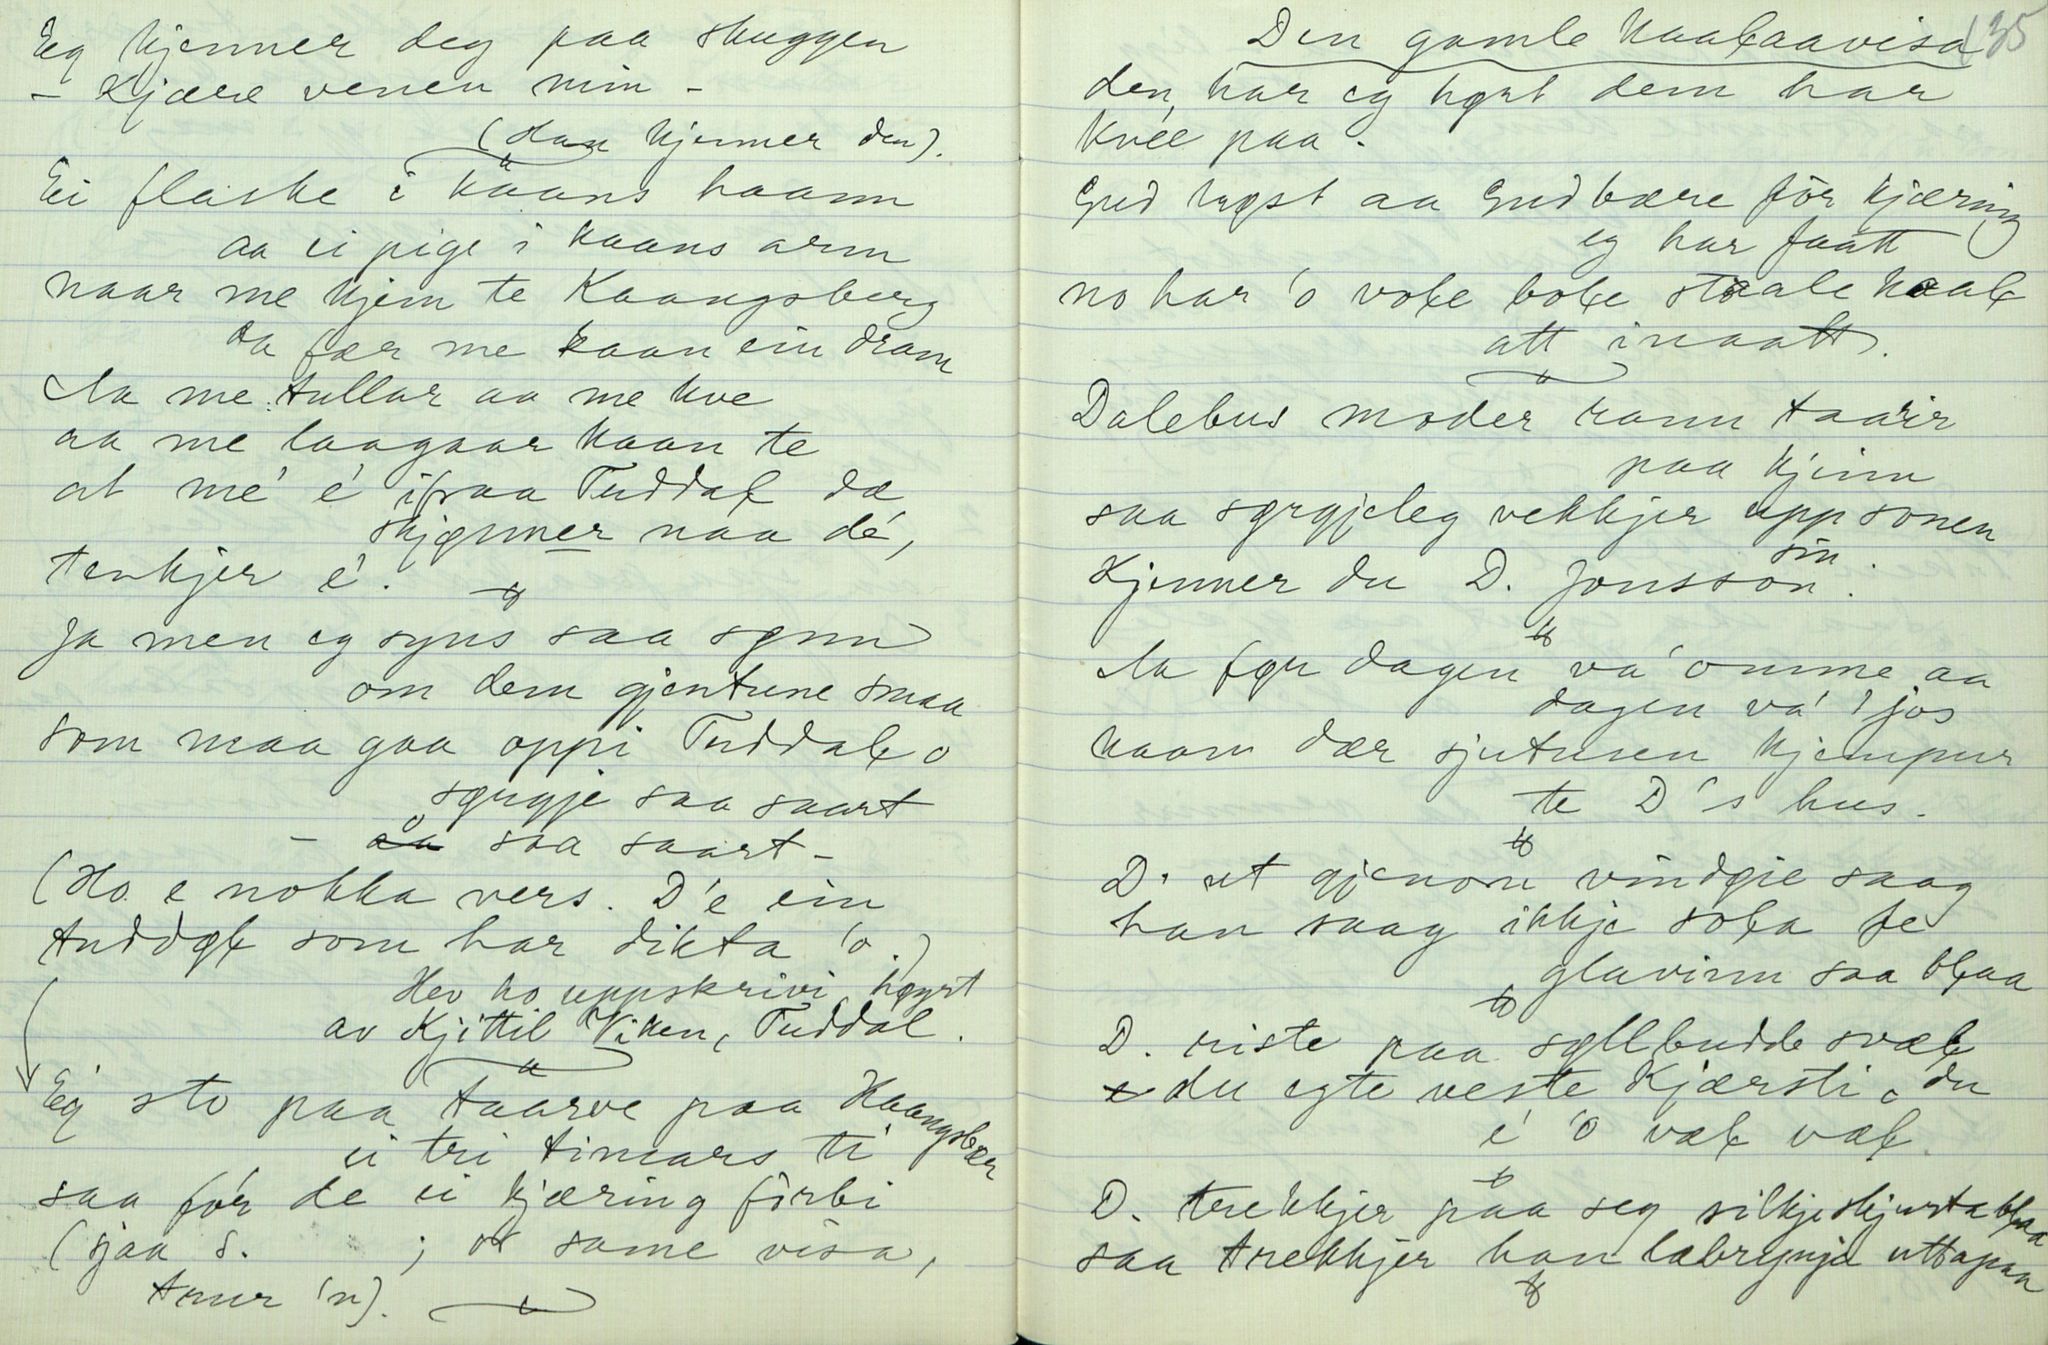 Eg kjenner deg paa skuggen
- Kjære venen min -
(Han kjenner den).
Ei flaske i kaans haann
aa ei pige i kaans arm
naar me kjem te Kaangsberg
da fær me kaan ein dram
Aa me tullar aa me kve
aa me laagaar kaan te
at me' e' ifraa Tuddal dæ
skjønner naa de',
tenkjer e'.
Ja men eg syns saa synn
om dem gjentune smaa
som maa gaa oppi Tuddal o
sørgje saa saart
- o saa saart -
(Ho e nokka vers. D'e ein
tuddøl som har dikta 'o.)
Hev ho uppskrivi høyrt
av Kjittil Viken, Tuddal.
Eg sto paa taarve paa Kaangsbær
ei tri timars ti
saa fór de ei kjæring fórbi
(sjaa s. ; or same visa,
trur 'n).
135
Den gamle Kaalaavisa
den, har eg hørt dem har
kvee paa.
Gud trøst aa Gud bære fór kjæring
eg har faatt
no har 'o vole bole staale kaal
att inaatt.
Dalebus moder rann taarir
paa kjinn
saa sørgjeleg vekkjer upp sonen
sin
Kjenner du D. Jonsson.
Aa før dagen va' omme aa
dagen va' 'jos
kaam dær sjutusen kjempur
te D's hus.
D. ut gjenom vindøie saag
han saag ikkje sola fe
glavinn saa blaa
D. riste paa syllbudde svæl
du egte veste Kjærsti, du
e' 'o væl væl.
D. trekkjer paa seg silkjeskjurta blaa
saa trekkjer han labrynja uttapaa